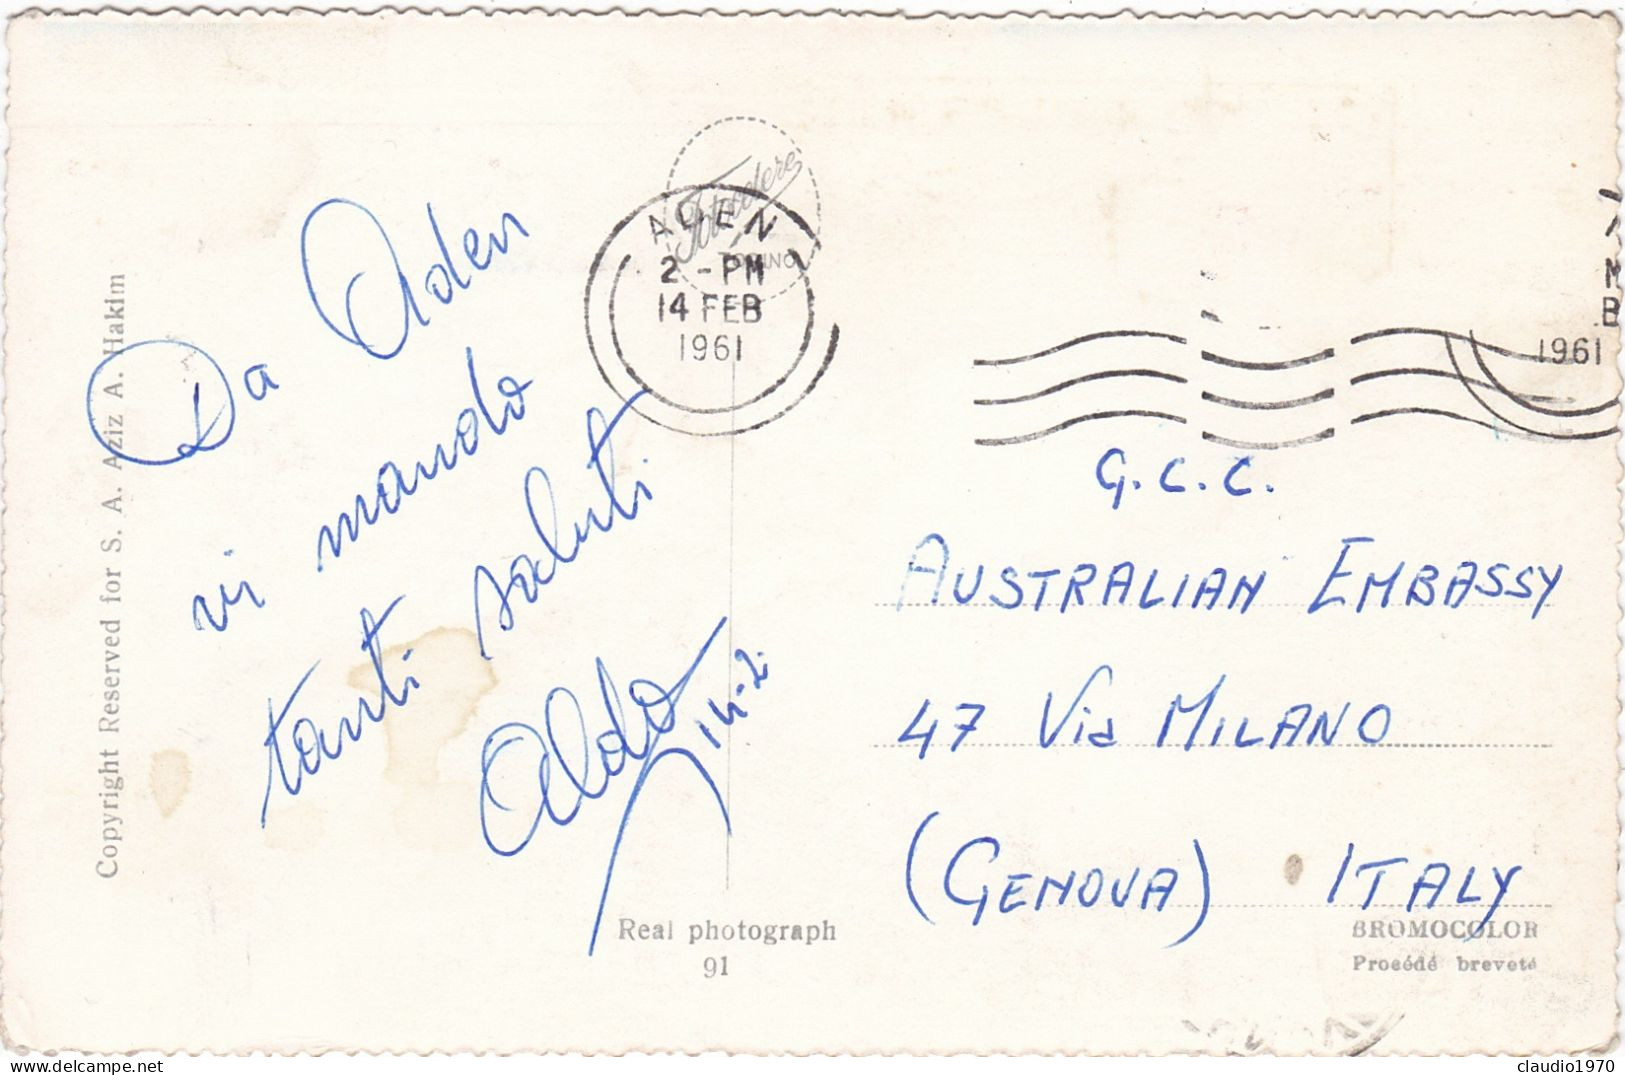 Copyright Reserved for S. A. Aziz A. Hakim
Da Aden
vi mando
tanti saluti
Aldo
14-2.
Fotedere
TORINO
ADEN
2 - PM
14 FEB
1961
1961
G.C.C.
AUSTRALIAN EMBASSY
47 Via MILANO
(GENOVA) ITALY
Real photograph
91
BROMOCOLOR
Procédé breveté
claudio1970